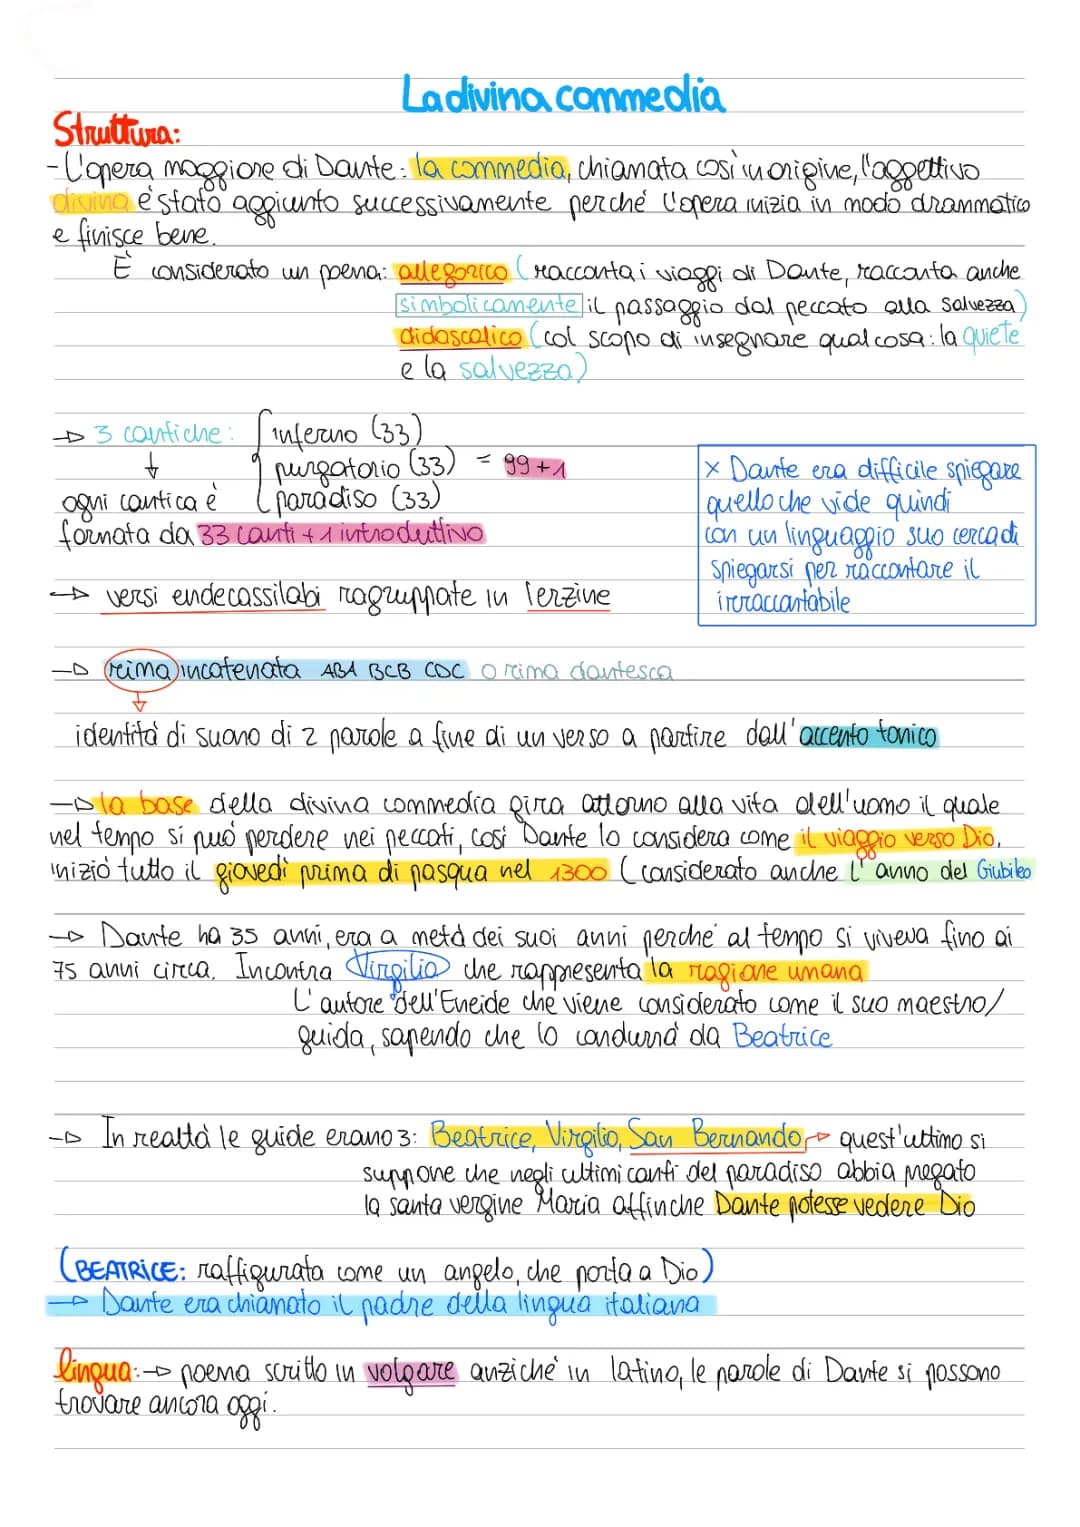 La divina commedia
Struttura:
- L'opera maggiore di Dante: la commedia, chiamata così in origine, l'aggettivo
divina è stato aggiunto successivamente perché l'opera inizia in modo drammatico
e finisce bene.
È considerato un poema: allegorico (racconta i viaggi di Dante, racconta anche
simbolicamente il passaggio dal peccato alla salvezza)
didascalico (col scopo di insegnare qualcosa: la quiete
e la salvezza)
→ 3 cantiche: { inferno (33)
↓ purgatorio (33) = 99 + 1
ogni cantica è paradiso (33)
formata da 33 canti + 1 introduttivo
x Dante era difficile spiegare
quello che vide quindi
con un linguaggio suo cerca di
spiegarsi per raccontare il
irraccontabile
→ versi endecassilabi ragruppate in Terzine
→ rima incatenata ABA BCB CDC o rima dantesca
↓
identità di suono di 2 parole a fine di un verso a partire dall'accento tonico
→ la base della divina commedia gira attorno alla vita dell'uomo il quale
nel tempo si può perdere nei peccati, così Dante lo considera come il viaggio verso Dio,
iniziò tutto il giovedì prima di pasqua nel 1300 (considerato anche l'anno del Giubileo
→ Dante ha 35 anni, era a metà dei suoi anni perché al tempo si viveva fino ai
75 anni circa. Incontra Virgilio che rappresenta la ragione umana
L'autore dell'Eneide che viene considerato come il suo maestro/
guida, sapendo che lo condurrà da Beatrice
→ In realtà le guide erano 3: Beatrice, Virgilio, San Bernando → quest'ultimo si
suppone che negli ultimi canti del paradiso abbia pregato
la santa vergine Maria affinche Dante potesse vedere Dio
(BEATRICE: raffigurata come un angelo, che porta a Dio)
→ Dante era chiamato il padre della lingua italiana
lingua: → poema scritto in volgare anziché in latino, le parole di Dante si possono
trovare ancora oggi.